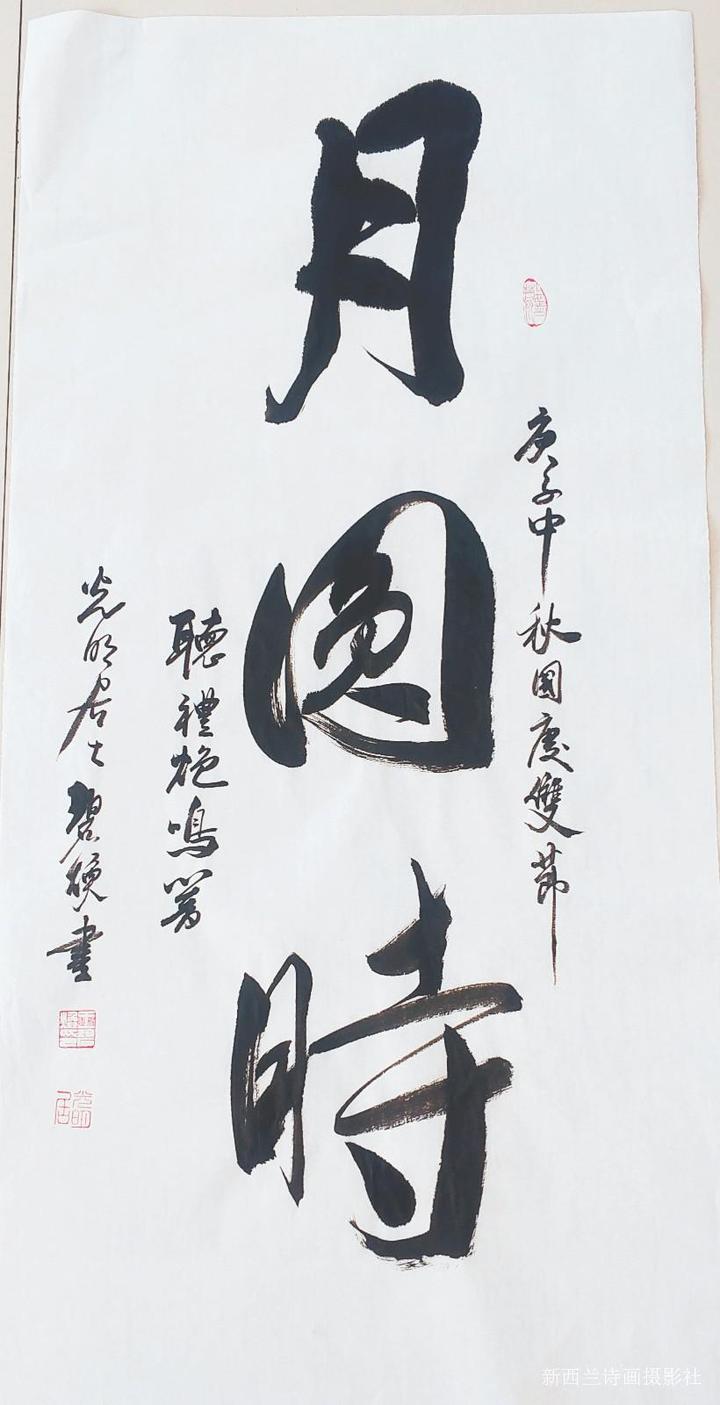 庚子中秋國慶雙節
月圓時
聽禮炮鳴著
光明居士碧煥書
光明居
新西兰诗画摄影社